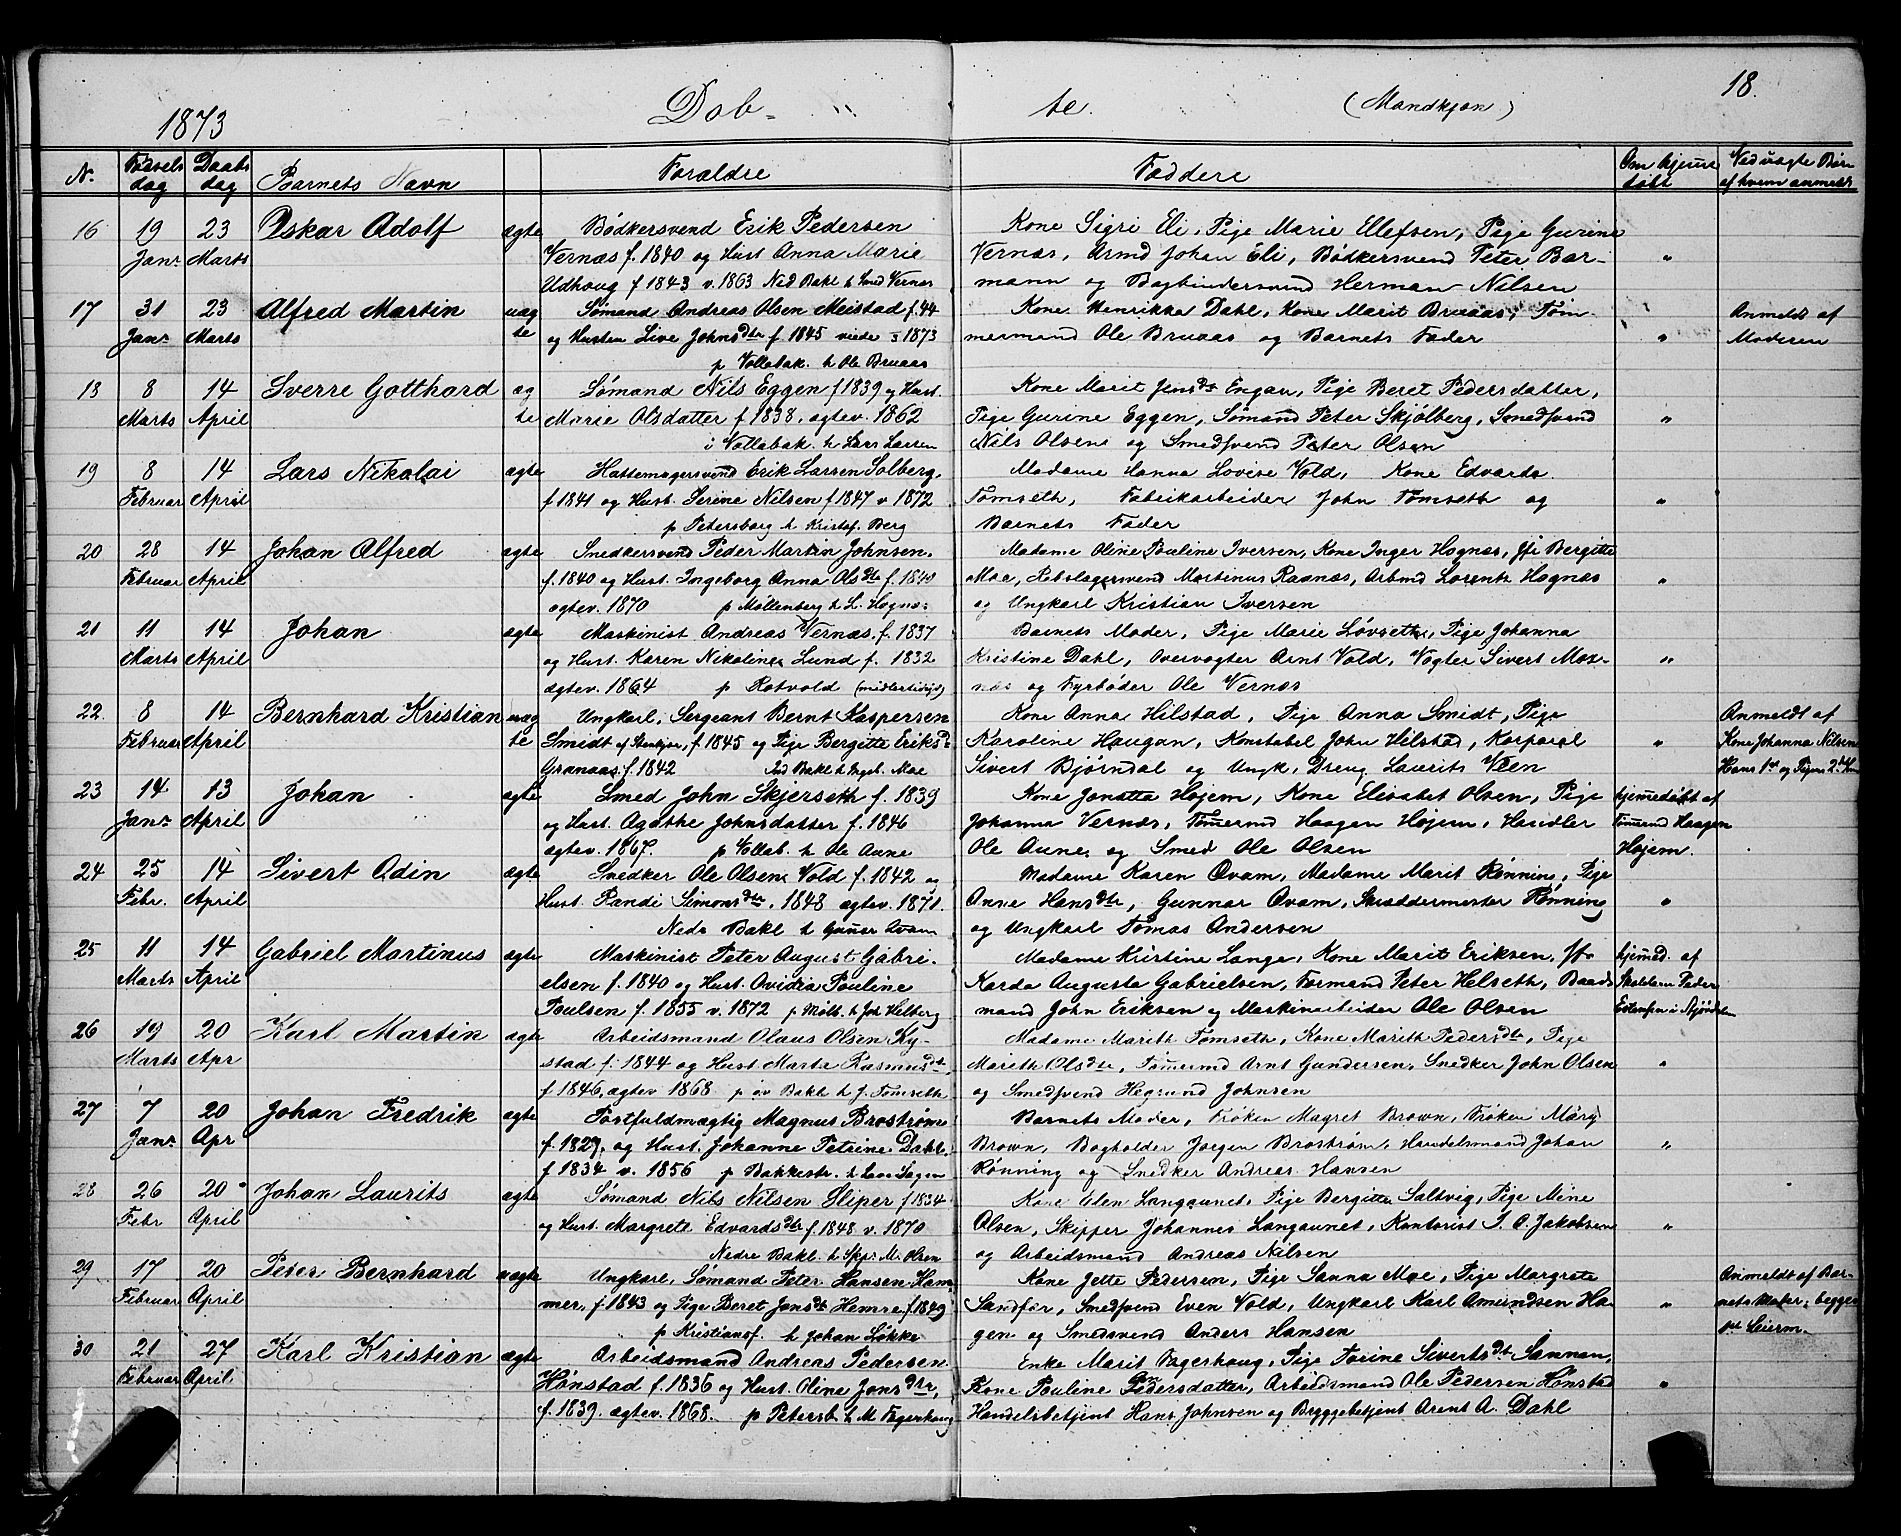 1873 Døb- te. (Mandkjøn) 18.
N. Fødsels dag Daabs dag Barnets Navn Forældre Faddere Om hjemme døbt Ved uægte Børn af hvem anmeldt
16 19 Jan. 23 Marts Oskar Adolf ægte
Bødkersvend Erik Pedersen
Vernæs f. 1840 og Hust. Anna Marie
Udhoug f 1843 v. 1863 Ned Bakl h Smed Vernæs
Kone Sigri Eli, Pige Marie Ellefsen, Pige Gurine
Vernæs, Armd Johan Eli, Bødkersvend Peter Bar-
mann og Bogbindersvend Herman Nilsen
"
17 31 Jan. 23 Marts Alfred Martin uæg te
Sømand Andreas Olsen Meistad f. 44
og Husten Live Johnsdtr f. 1845 viede 1873
p Vollabak. h Ole Bruaas
Kone Henrikke Dahl, Kone Marit Bruaas, Tøm
mermand Ole Bruaas og Barnets Fader
"
Anmeldt af
Moderen
18 8 Marts 14 April Sverre Gotthard æg te
Sømand Nils Eggen f 1839 og Hust.
Marie Olsdatter f 1838, ægtev. 1862
i Vollabak. h Lars Larsen
Kone Marit Jensdt Engan, Pige Beret Pedersdatter,
Pige Gurine Eggen, Sømand Peter Skjølberg, Smedsvend
Nils Olsen og Smedsvend Peter Olsen
"
19 8 Februar 14 April Lars Nikolai ægte
Hattemagersvend Erik Larsen Solberg,
f. 1841 og Hust. Serine Nilsen f 1847 v 1872
p Petersborg h Kristof. Berg
Madame Hanna Lovise Vold, Kone Edvarda
Tomseth, Fabrikarbeider John Tomseth og
Barnets Fader
"
20 28 Februar 14 April Johan Alfred ægte
Snedkersvend Peder Martin Johnsen.
f. 1840 og Hust. Ingeborg Anna Olsdtr f. 1840
ægtev. 1870 p Møllenberg h L. Hognæs
Madame Oline Pauline Iversen, Kone Inger Hognæs, Pi Bergitte
Moe, Rebslagersvend Martinus Raanæs, Arbmd Lorentz Hognæs
og Ungkarl Kristian Iversen
"
21 11 Marts 14 April Johan ægte
Maskinist Andreas Vernæs, f. 1837
og Hust. Karen Nikoline Lund f. 1832
ægtev. 1864 p Rotvold (midlertidigt)
Barnets Moder, Pige Marie Løvseth, Pige Johanna
Kristine Dahl, Overvogter Arnt Vold, Vogter Sivert Mox-
næs og Fyrbøder Ole Vernæs
"
22. 8 Februar 14 April Bernhard Kristian uæg te
Ungkarl, Sergeant Bernt Kaspersen
Smidt af Stenkjær, f. 1845 og Pige Bergitte Eriksdt
Granaas f. 1842 Ind Bakl h Ingeb. Moe
Kone Anna Hilstad, Pige Anna Smidt, Pige
Karoline Haugan, Konstabel John Hilstad, Korporal
Sivert Bjørndal og Ungk. Dreng Laurits Veen
"
Anmeldt af
Kone Johanna Nilsen
Hans 1st og Pigens 2det
23 14 Jan. 13 April Johan ægte
Smed John Skjerseth f. 1839
og Hust. Agathe Johnsdatter f. 1846
ægtev. 1867. p Vollab. h Ole Aune
Kone Jonetta Hojem, Kone Elisabet Olsen, Pige
Johanna Vernæs, Tømermd Haagen Hojem, Handler
Ole Aune og Smed Ole Olsen
hjemedøbt af
Tømermd Haagen
Hojem.
24 25 Febr. 14 April Sivert Odin ægte
Snedker Ole Olsen Vold f. 1842 og
Hust. Randi Simonsdtr, 1848 ægtev. 1871.
Nedr Bakl h Gunar Qvam
Madame Karen Qvam, Madame Marit Rønning, Pige
Anne Hansdtr, Gunnar Qvam, Skræddermester Rønning
og Ungkarl Tomas Andersen
"
25 11 Marts 14 April Gabriel Martinus ægte
Maskinist Peter August Gabri-
elsen f. 1840 og Hust. Ovidia Pouline
Poulsen f. 1855 v. 1872 p. Møllb. h Joh Helberg
Madame Kristine Lange, Kone Marit Eriksen, Jfr
Karda Auguste Gabrielsen, Formand Peter Helseth, Baads
mand John Eriksen og Maskinarbeider Ole Olsen
hjemed. af
Skolelærer Peder
26 19 Marts 20 Apr Karl Martin ægte
Arbeidsmand Olaus Olsen Ky-
stad f. 1844 og Hust. Marta Rasmusdt
f 1846, ægtev 1868 p øv Bakl h J. Tomseth
Madame Marith Tomseth, Kone Marith Pedersdtr, Pige
Marith Olsdtr, Tømermd Arnt Gundersen, Snedker John Olsen
og Smedsvend Hegrund Johnsen
"
27 7 Jan. 20 Apr Johan Fredrik ægte
Postfuldmægtig Magnus Brostrøm
f. 1827, og Hust. Johanne Petrine Dahl
f 1834 v. 1856 p Bakkestr.
Barnets Moder, Frøken Magret Brown, Frøken Mary
Brown, Bogholder Jørgen Brostrøm, Handelsmand Johan
Rønning og Snedker Andreas Hansen
"
28 26 Febr 20 April Johan Laurits ægte
Sømand Nils Nilsen Sliper f 1834
og Hust. Margrete Edvardsdtr f 1848 v. 1870
Nedre Bakl. h Skpr. M. Olsen
Kone Elen Langaunet, Pige Bergitte Saltvig, Pige Mine
Olsen, Skipper Johannes Langaunet, Kontorist S. A. Jakobsen
og Arbeidsmand Andreas Nilsen
"
29 17 Februar 20 April Peter Bernhard uægte
Ungkarl, Sømand Peter Hansen Ham
mer, f 1843 og Pige Beret Jonsdt Hemre f 1849
p Kristiansf. h Johan Løkke
Kone Jette Pedersen, Pige Sanna Moe, Pige Margrete
Sandfær, Smedsvend Even Vold, Ungkarl Karl Amundsen Ha
gen og Smedsvend Anders Hansen
"
Anmeldt af Bar-
nets Moder, begges
1st Leierm.
30 21 Februar 27 April. Karl Kristian ægte
Arbeidsmand Andreas Pedersen
Hønstad f. 1836 og Hust. Oline Jonsdtr,
f. 1839. ægtev. 1868. p Petersb h M Fagerhaug
Enke Marit Fagerhaug, Pige Torine Sivertsdt Sannan,
Kone Pouline Pedersdatter, Arbeidsmand Ole Pedersen Hønstad
Handelsbetjent Hans Johnsen og Bryggebetjent Arent A. Dahl
"